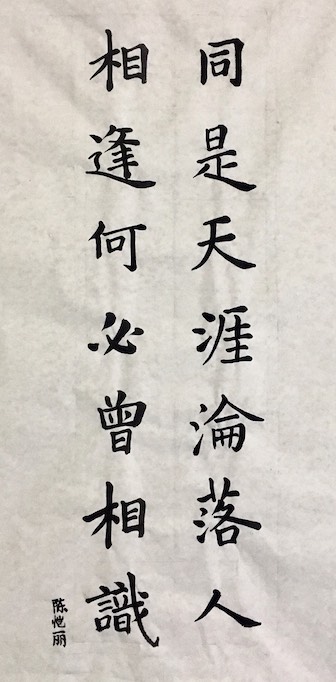 同是天涯淪落人
相逢何必曾相識
陈恺丽